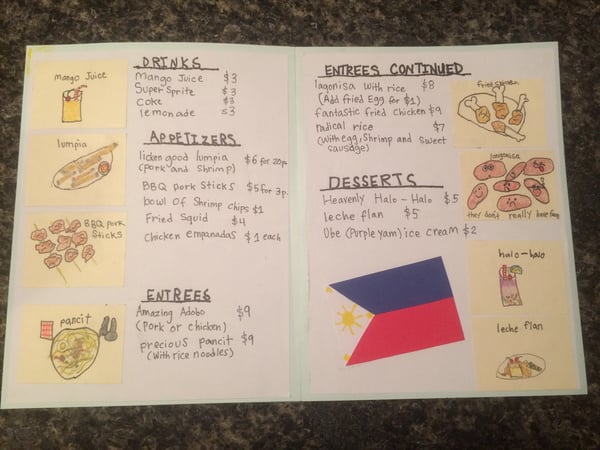 mango Juice
lumpia
BBQ pork
Sticks
pancit
DRINKS
Mango Juice $3
Super Sprite $3
Coke $3
lemonade $3
APPETIZERS
licken good lumpia $6 for 20p.
(pork and Shrimp)
BBQ pork Sticks $5 for 3p.
bowl of Shrimp chips $1
Fried Squid $4
Chicken empanadas $1 each
ENTREES
Amazing Adobo $9
(Pork or chicken)
precious pancit $9
(With rice noodles)
ENTREES CONTINUED
lagonisa with rice $8
(Add fried Egg for $1)
fantastic fried chicken $9
radical rice $7
(With egg, Shrimp and Sweet
sausage)
DESSERTS
Heavenly Halo-Halo $5
leche flan $5
Ube (Purple yam) ice cream $2
fried chicken
longonisa
they don't really have faces
halo-halo
leche flan